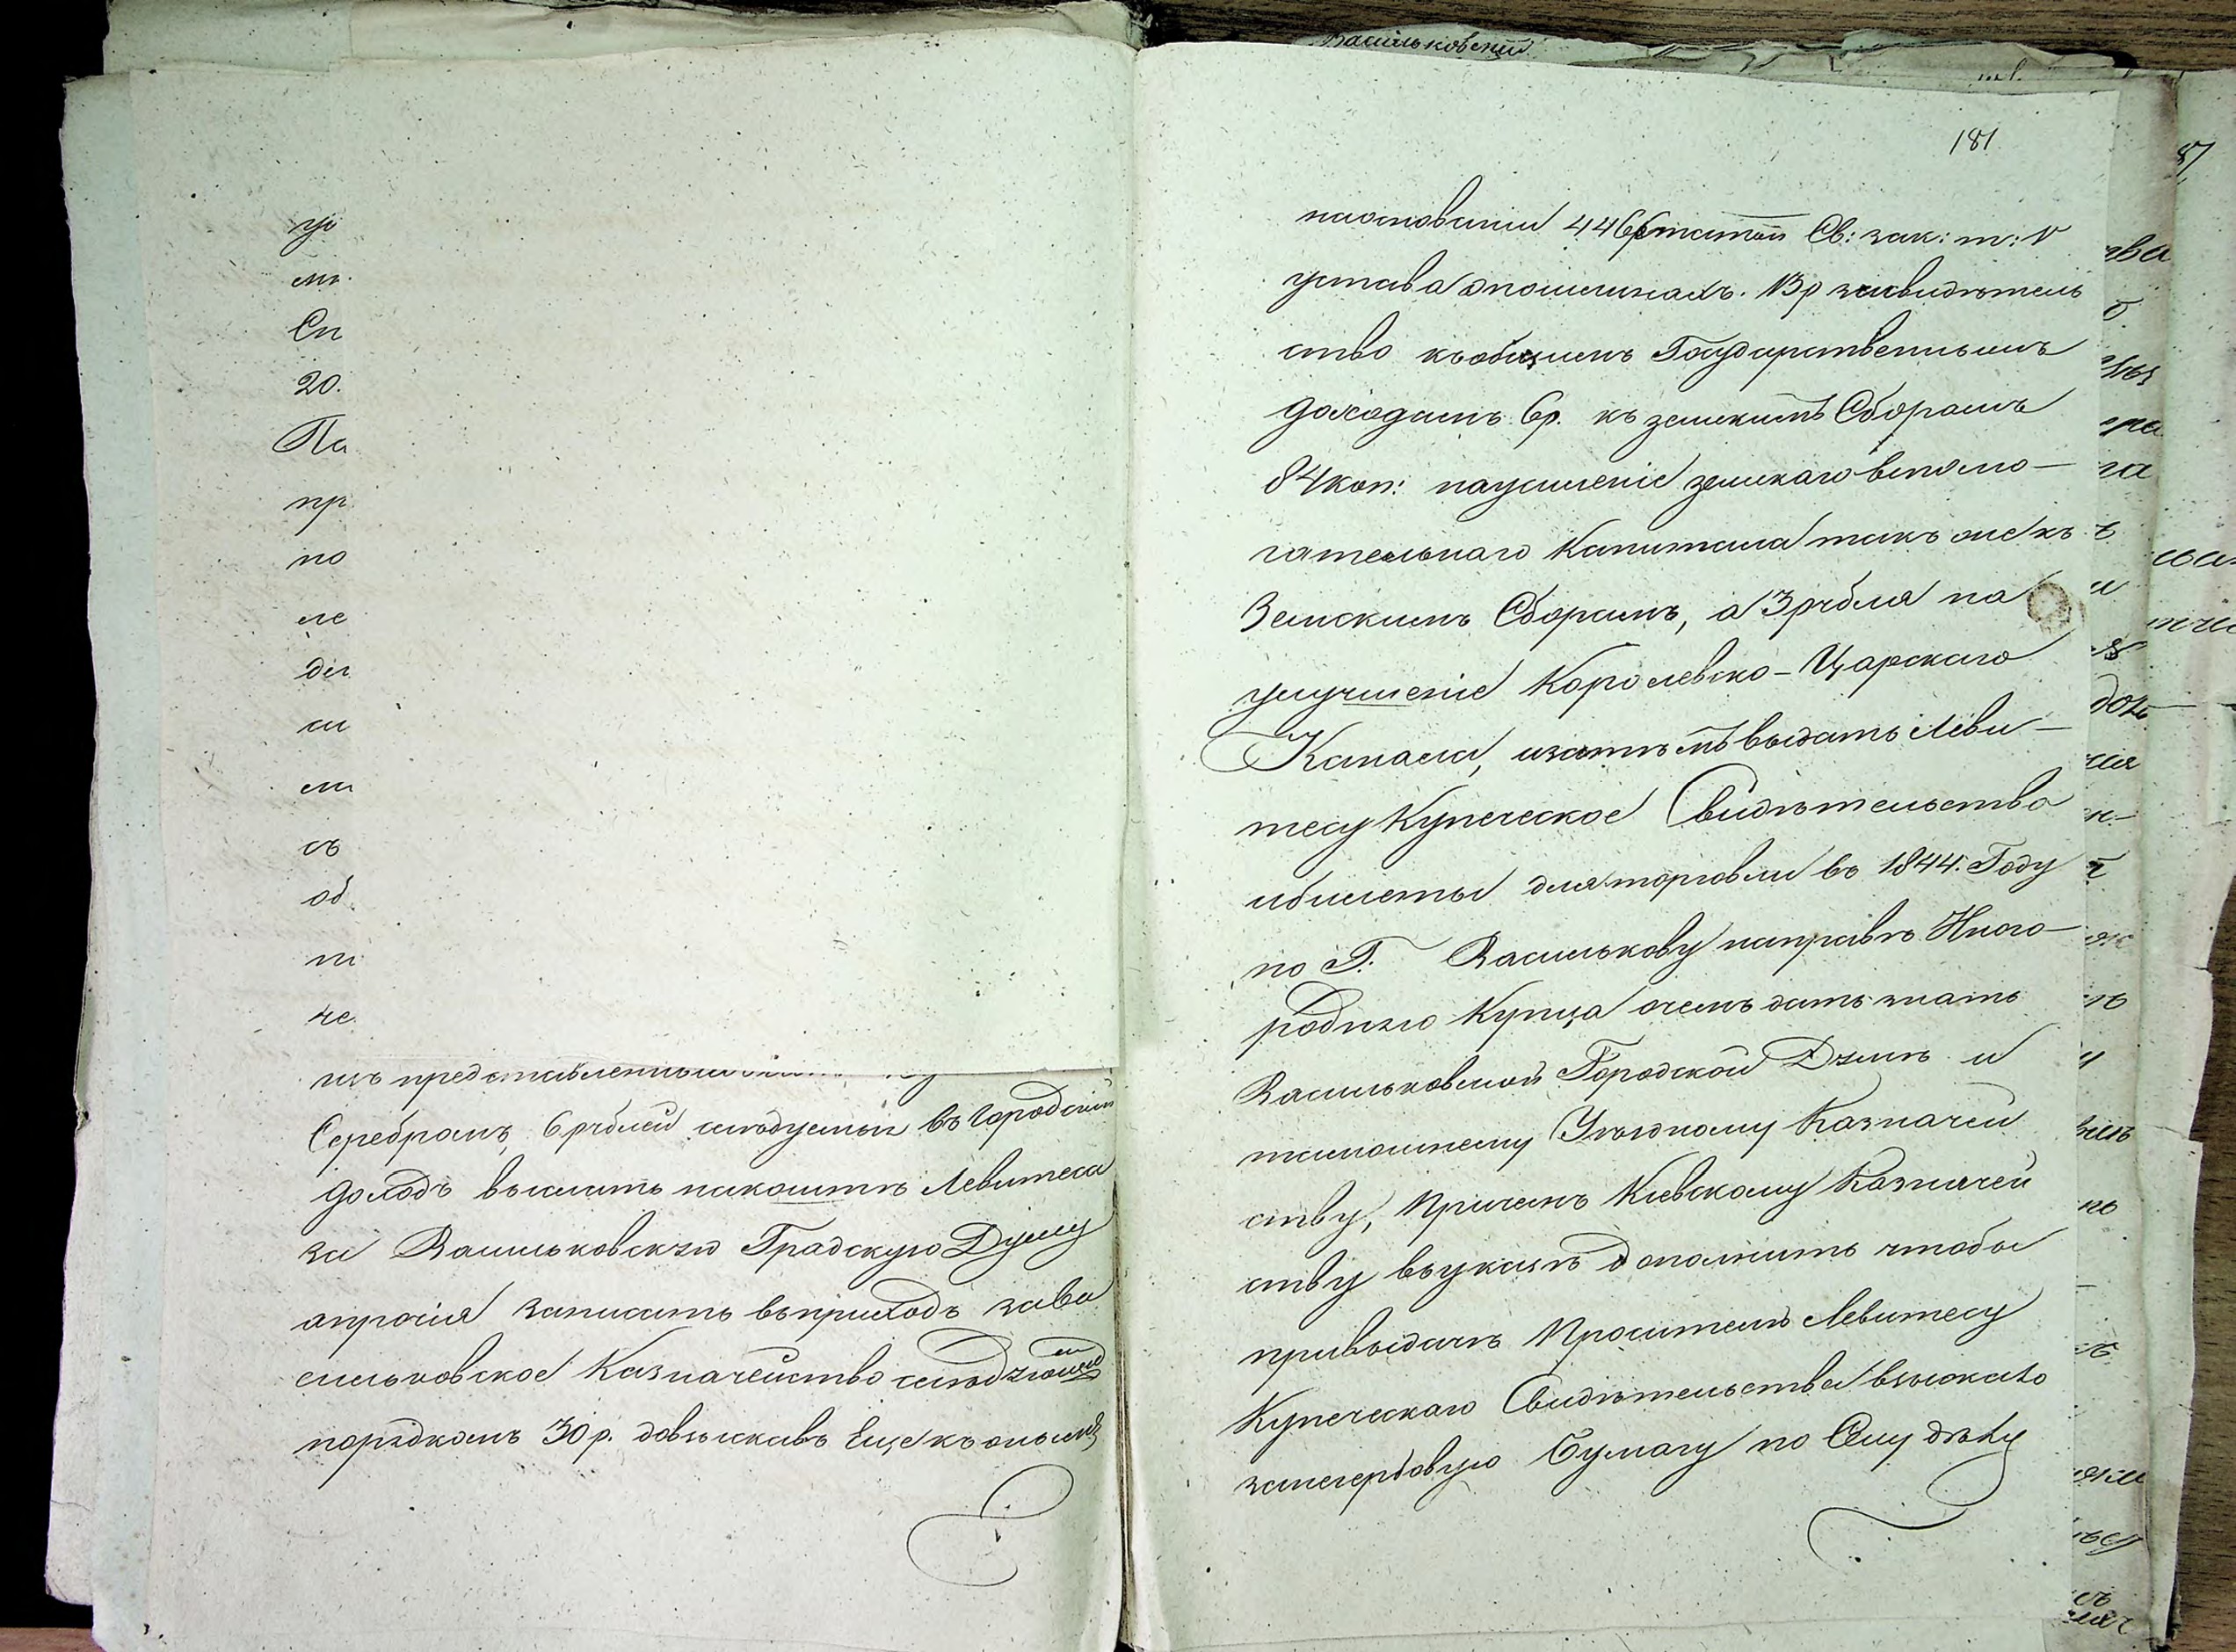 Васильковскій
181
ую
ем
Сп
20.
Па
пр
по
ле
ден
си
ем
съ
об
че
изъ представленныхъ
Серебромъ, 6 рублей слѣдуемыя въ городскій
доходъ выслать накоштъ Левитеса
за Васильковскую Градскую Думу
апрочія записать въприходъ заВа
сильковское Казначейство слѣдующимъ
порядкомъ 30 р. довзыскавъ Еще къ онымъ
наоснованіи 446 статьи Св: зак: т: V
устава опошлинахъ. 13р засвидѣтель
ство кобщимъ Государственнымъ
доходамъ 6р. къ земскимъ Сборамъ
84 коп: наусиленіе земскаго вспомо-
гательнаго Капитала такъ же къ
Земскимъ Сборамъ, а 3 рубля на
улучшеніе Королевско-Царскаго
Канала, изатѣмъ выдать Леви-
тесу Купеческое Свидѣтельство
ибилеты дляторговли въ 1844. Году
по Г. Василькову направѣ Иного-
роднаго Купца очемъ дать знать
Васильковской Городской Думѣ и
тамошнему Уѣздному Казначей
ству, Причемъ Кіевскому Казначей
ству въуказѣ дополнить чтобы
привыдачѣ Просителю Левитесу
Купеческаго Свидѣтельства взыскало
занегербовую Бумагу по Сему дѣлу